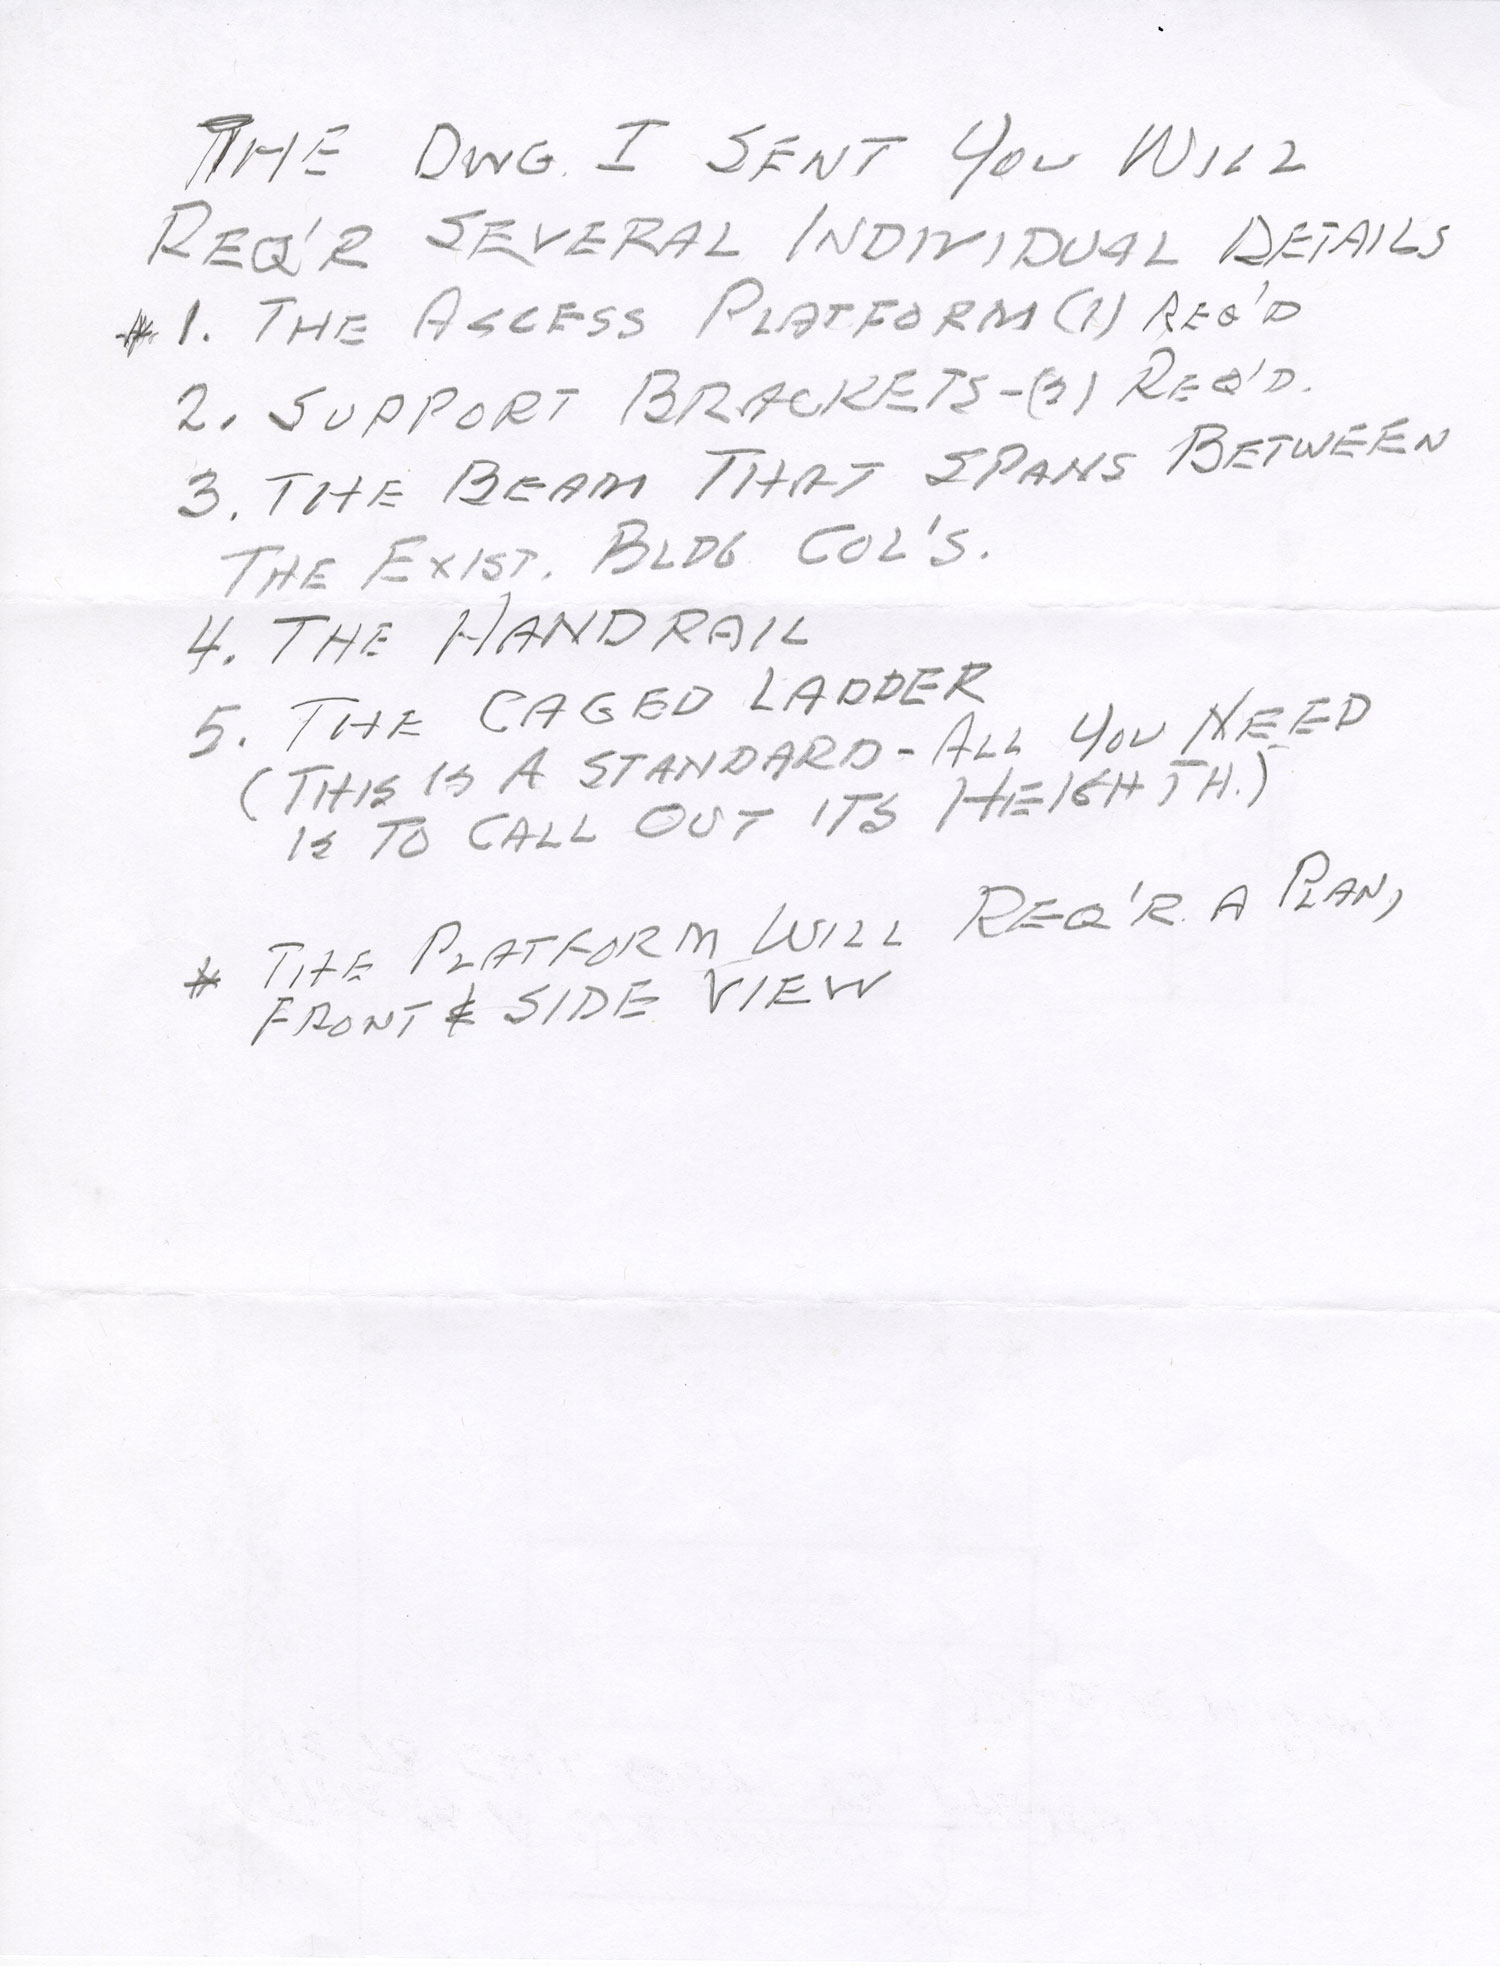 THE DWG. I SENT YOU WILL
REQ'R SEVERAL INDIVIDUAL DETAILS
* 1. THE ACCESS PLATFORM (1) REQ'D
2. SUPPORT BRACKETS-(3) REQ'D.
3. THE BEAM THAT SPANS BETWEEN
THE EXIST. BLDG COL'S.
4. THE HANDRAIL
5. THE CAGED LADDER
(THIS IS A STANDARD - ALL YOU NEED
IS TO CALL OUT ITS HEIGHTH.)
* THE PLATFORM WILL REQ'R. A PLAN,
FRONT & SIDE VIEW